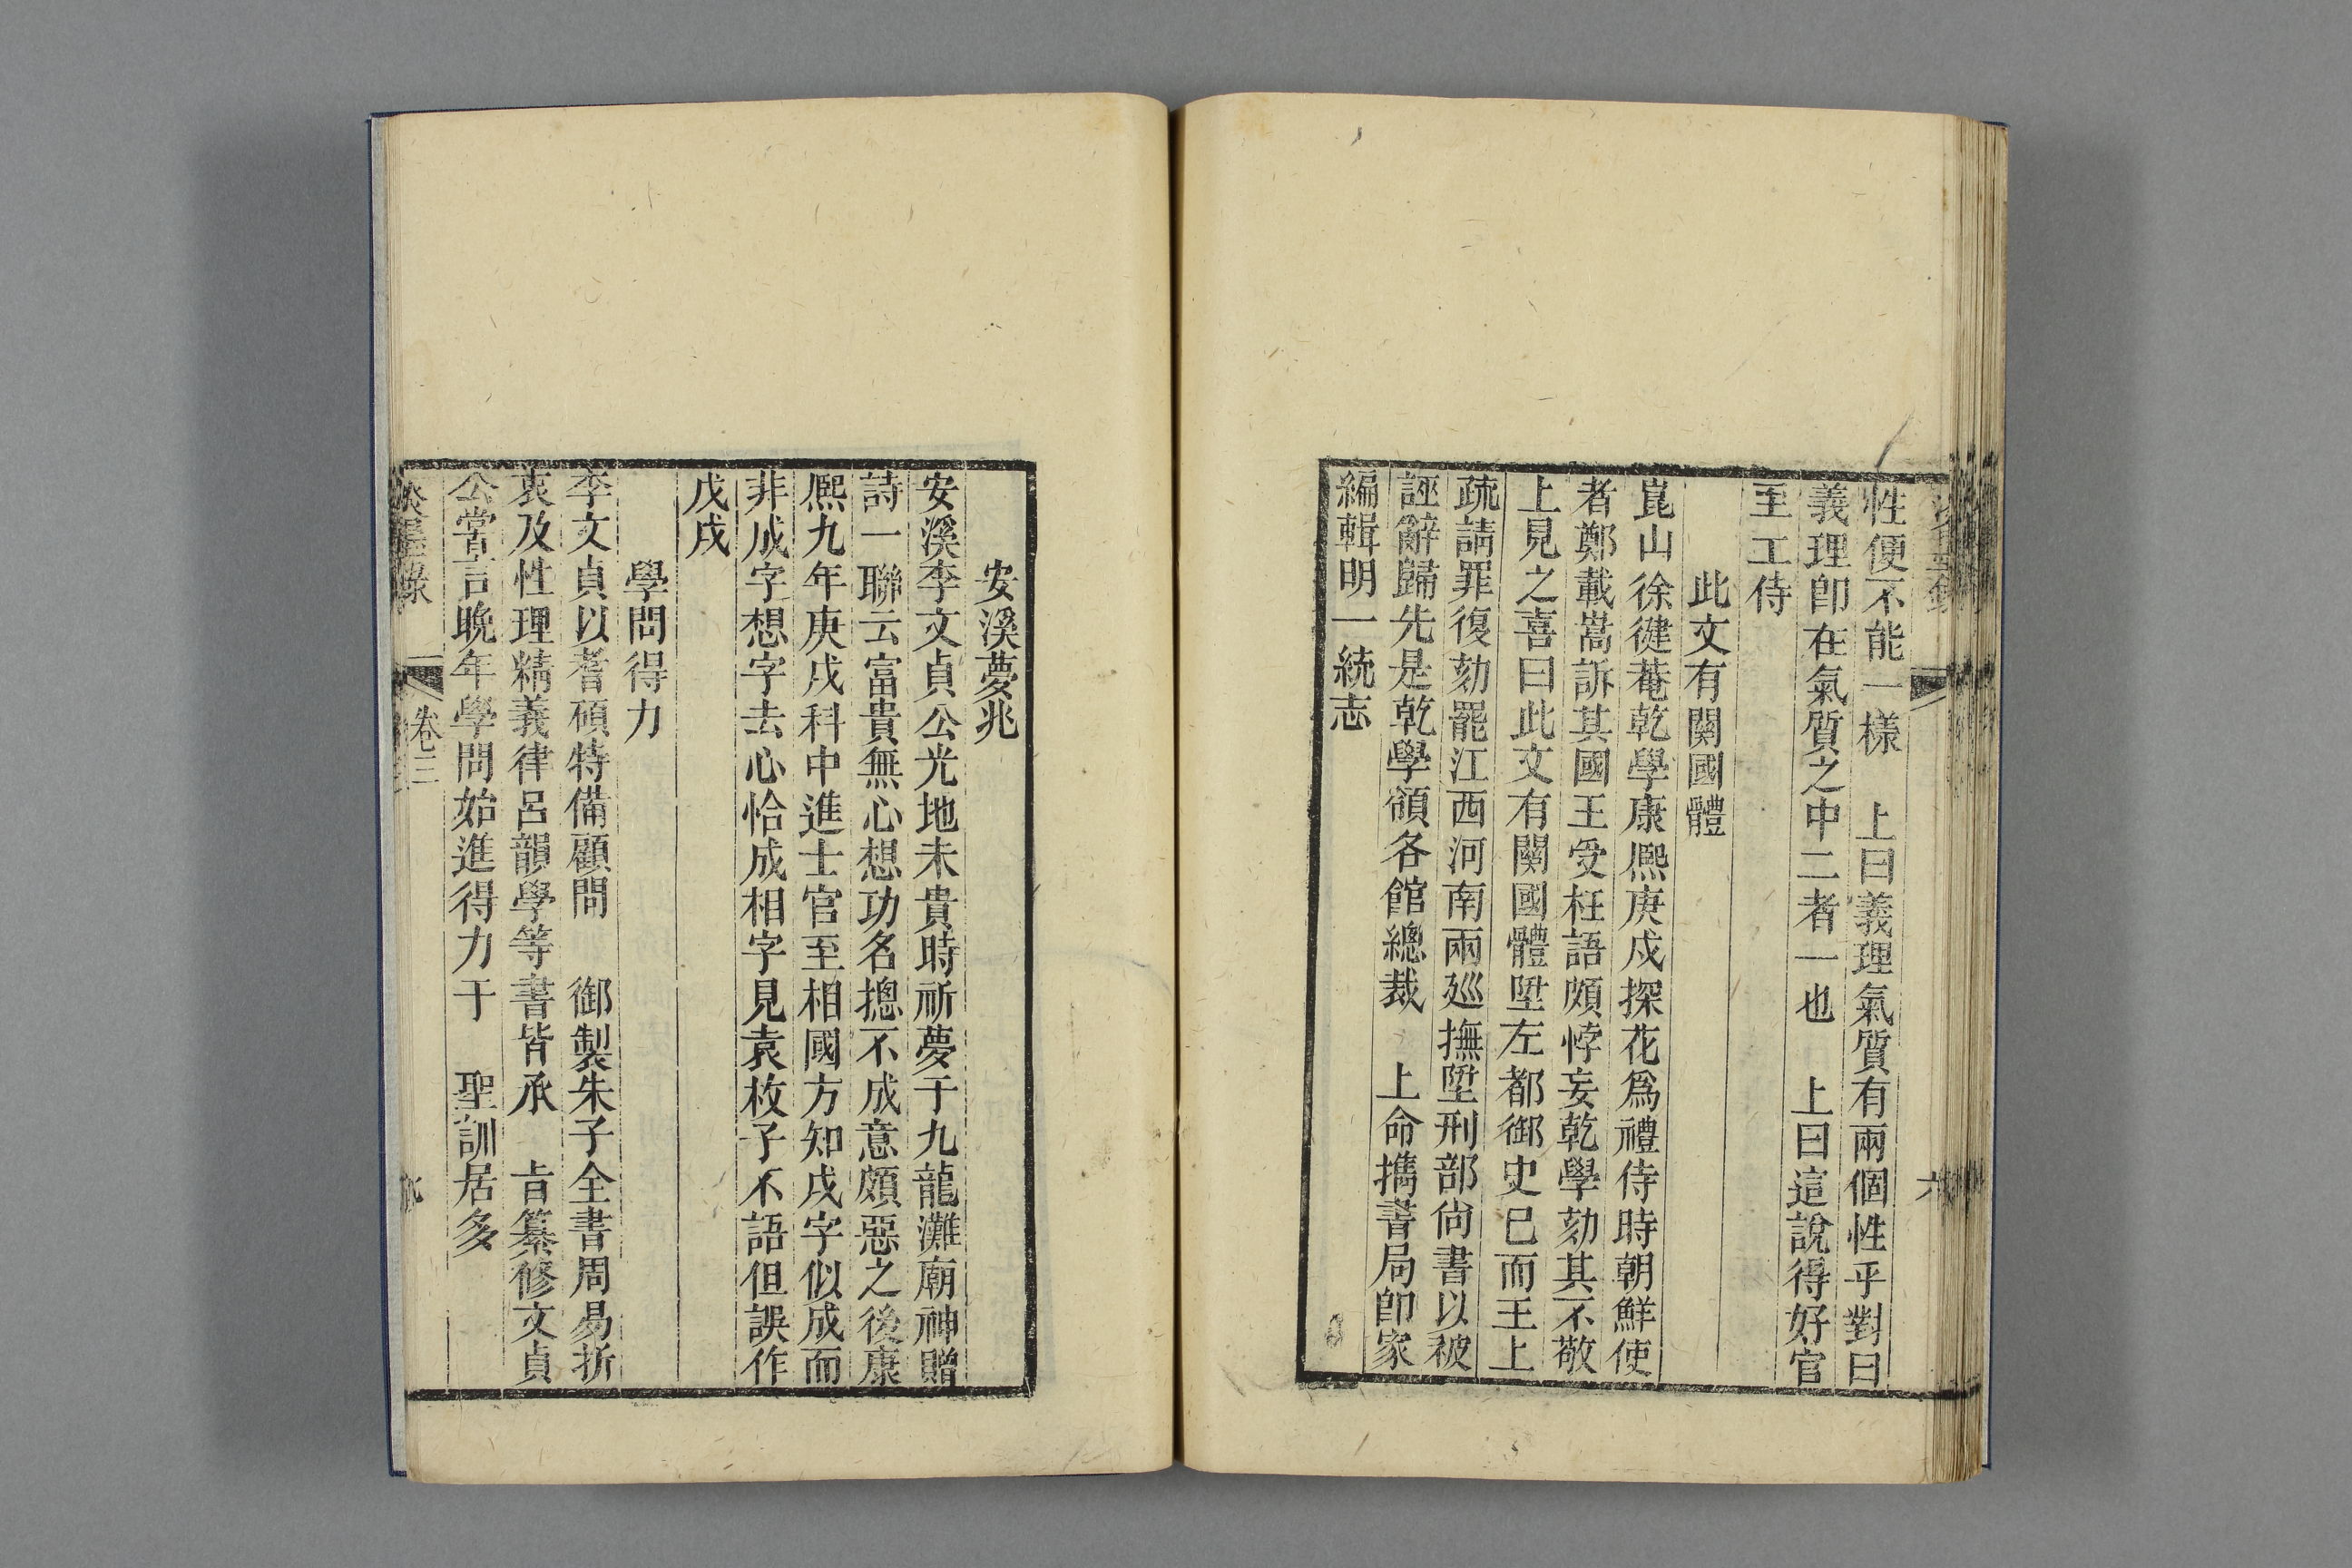 性便不能一樣　上曰義理氣質有兩個性乎對曰
義理卽在氣質之中二者一也　上曰這說得好官
至工侍
此文有関國體
崑山徐健菴乾學康熈庚戍探花爲禮侍時朝鮮使
者鄭載嵩訴其國王受枉語頗悖妄乾學劾其不敬
上見之喜曰此文有関國體陞左都御史巳而王上
疏請罪復劾罷江西河南兩廵撫陞刑部尙書以被
誣辭歸先是乾學領各館總裁　上命攜書局卽家
編輯明一統志
六
安溪夢兆
安溪李文貞公光地未貴時祈夢于九龍灘廟神贈
詩一聯云富貴無心想功名摠不成意頗惡之後康
熈九年庚戍科中進士官至相國方知戍字似成而
非成字想字去心恰成相字見袁枚子不語但誤作
戊戍
學問得力
李文貞以耆碩特備顧問　御製朱子全書周易折
衷及性理精義律呂韻學等書皆承　㫖纂修文貞
公嘗言晚年學問始進得力于　聖訓居多
卷三